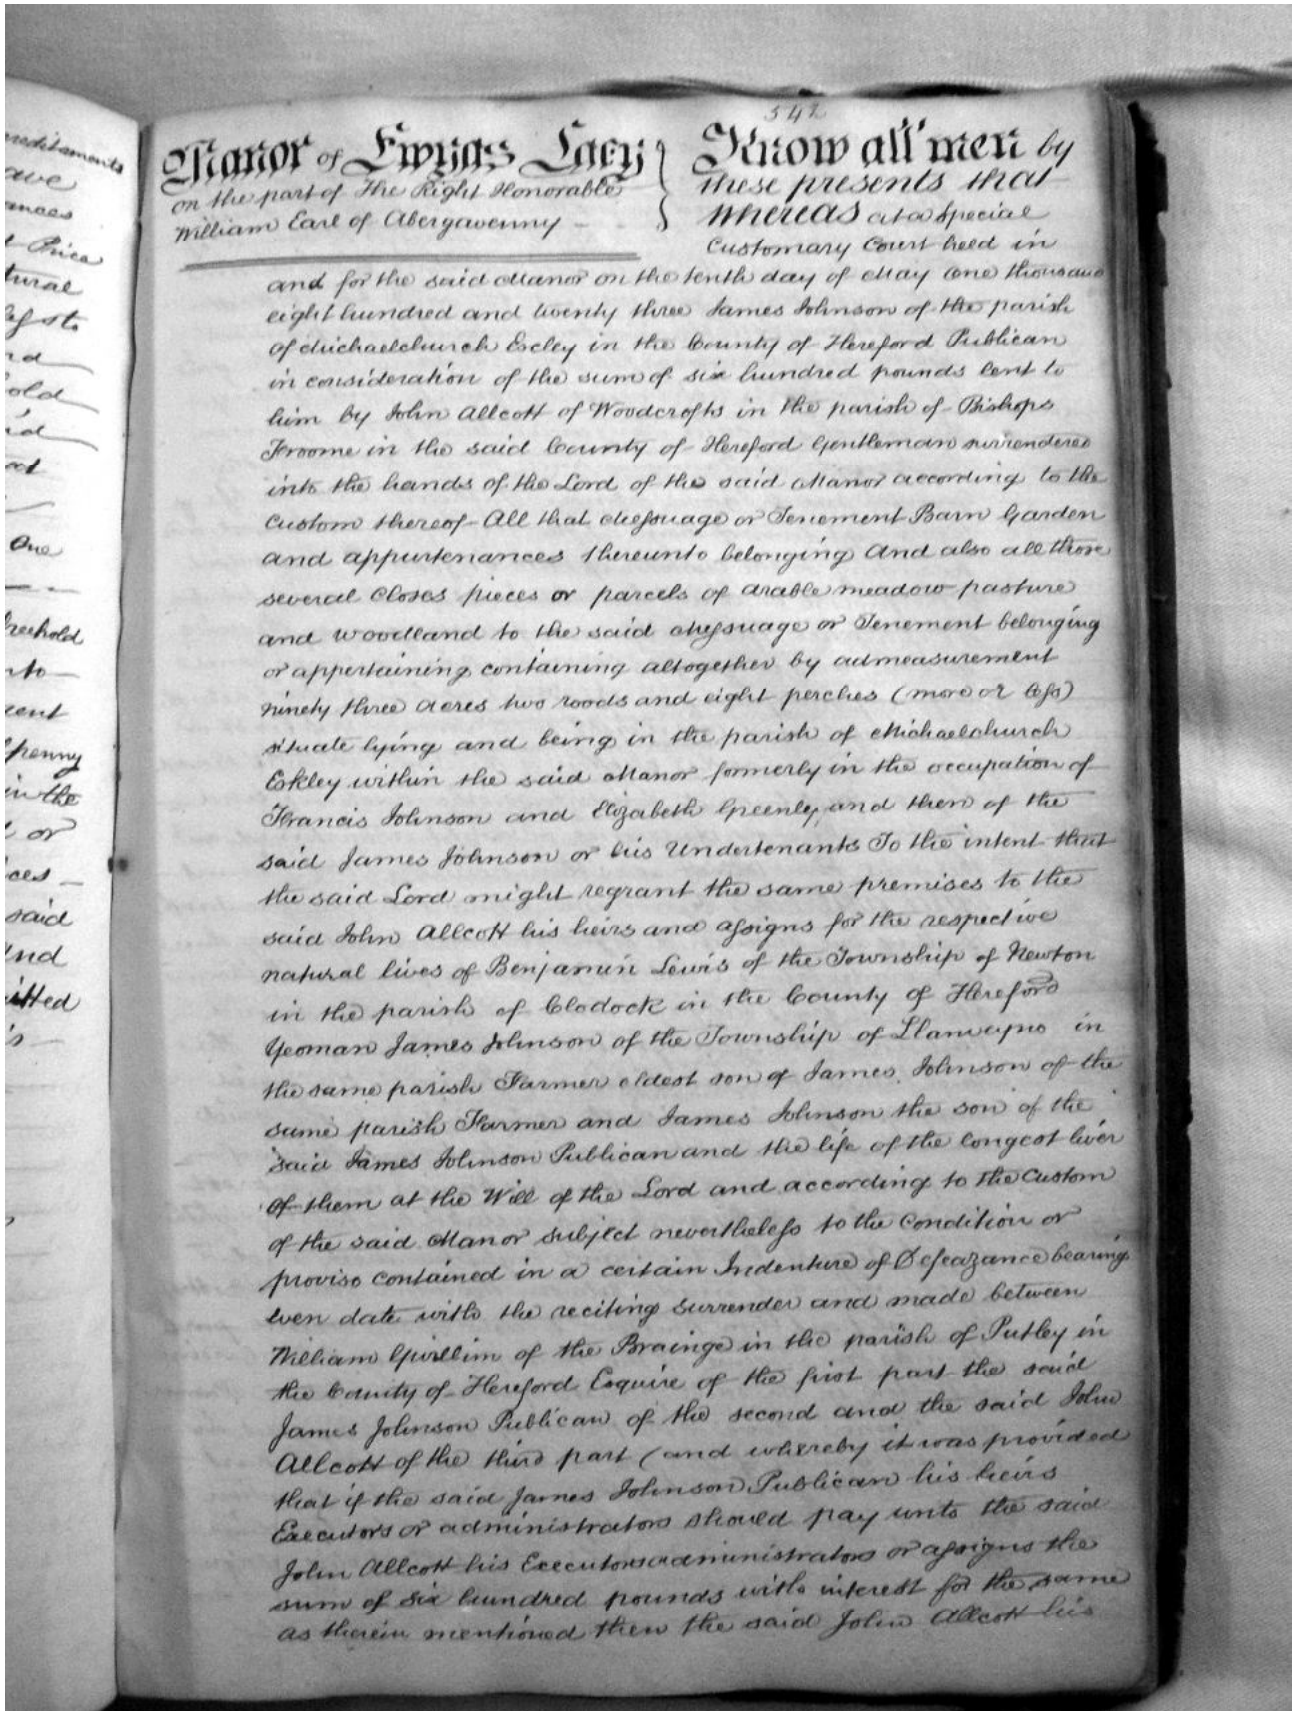 reditaments
ave
ances
Price
tural
rd
old
at
One
freehold
nto
cent
penny
in the
or
ces
said
And
itted
542
Manor of Ewyas Lacy
on the part of The Right Honorable
William Earl of Abergavenny
Know all men by
these presents that
whereas at a Special
Customary Court held in
and for the said Manor on the tenth day of May One thousand
eight hundred and twenty three James Johnson of the parish
of Michaelchurch Escley in the County of Hereford Publican
in consideration of the sum of six hundred pounds lent to
him by John Allcott of Woodcrofts in the parish of Bishops
Froome in the said County of Hereford Gentleman surrendered
into the hands of the Lord of the said Manor according to the
custom thereof All that Messuage or Tenement Barn Garden
and appurtenances thereunto belonging And also all those
several Closes pieces or parcels of arable meadow pasture
and woodland to the said Messuage or Tenement belonging
or appertaining containing altogether by admeasurement
ninety three acres two roods and eight perches (more or less)
situate lying and being in the parish of Michaelchurch
Eskley within the said Manor formerly in the occupation of
Francis Johnson and Elizabeth Greenley and then of the
said James Johnson or his Undertenants To the intent that
the said Lord might regrant the same premises to the
said John Allcott his heirs and assigns for the respective
natural lives of Benjamin Lewis of the Township of Newton
in the parish of Clodock in the County of Hereford
Yeoman James Johnson of the Township of Llanveyno in
the same parish Farmer eldest son of James Johnson of the
same parish Farmer and James Johnson the son of the
said James Johnson Publican and the life of the longest liver
of them at the Will of the Lord and according to the Custom
of the said Manor subject nevertheless to the condition or
proviso contained in a certain Indenture of Defeazance bearing
even date with the reciting surrender and made between
William Gwillim of the Brainge in the parish of Putley in
the County of Hereford Esquire of the first part the said
James Johnson Publican of the second and the said John
Allcott of the third part (and whereby it was provided
that if the said James Johnson Publican his heirs
Executors or administrators should pay unto the said
John Allcott his Executors administrators or assigns the
sum of six hundred pounds with interest for the same
as therein mentioned then the said John Allcott his